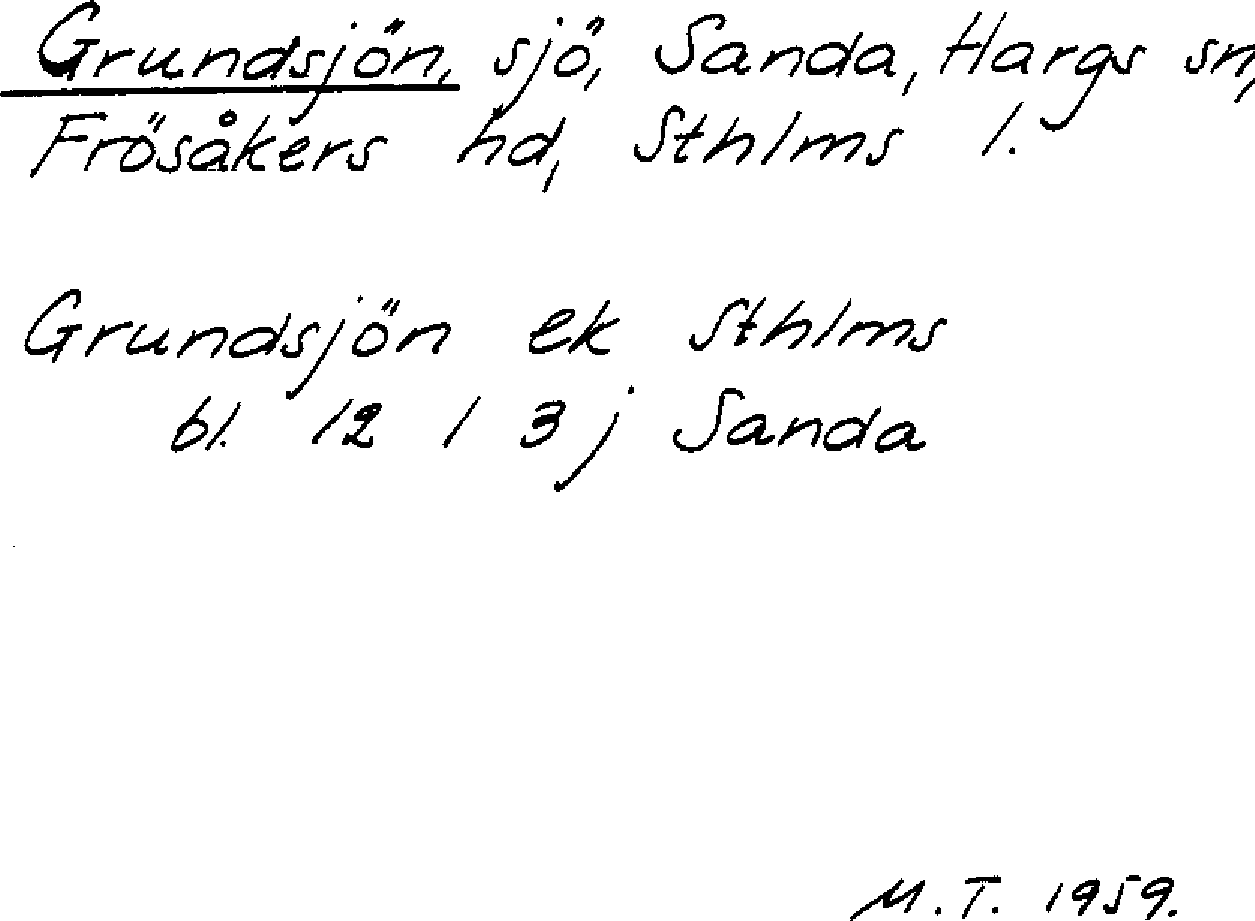 Grundsjön, sjö, Sanda, Hargs sn,
Frösåkers hd, Sthlms l.
Grundsjön ek Sthlms
bl. 12 1 3 j Sanda
M.T. 1959.